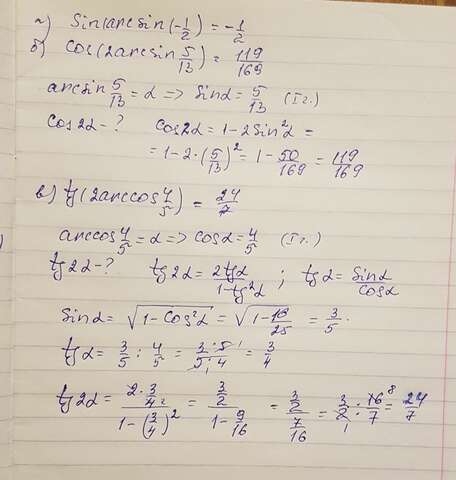 а) Sin(arcsin(-1/2)) = -1/2
б) cos(2arcsin 5/13) = 119/169
arcsin 5/13 = α => Sinα = 5/13 (I г.)
Cos2α - ? Cos2α = 1 - 2Sin²α =
= 1 - 2·(5/13)² = 1 - 50/169 = 119/169
в) tg(2arccos 4/5) = 24/7
arccos 4/5 = α => Cosα = 4/5 (I г.)
tg2α - ? tg2α = 2tgα/1-tg²α ; tgα = Sinα/Cosα
Sinα = √1-Cos²α = √1-16/25 = 3/5.
tgα = 3/5 : 4/5 = 3·5/5·4 = 3/4
tg2α = 2·3/4/1-(3/4)² = 3/2/1-9/16 = 3/2/7/16 = 3/2 : 16/7 = 24/7